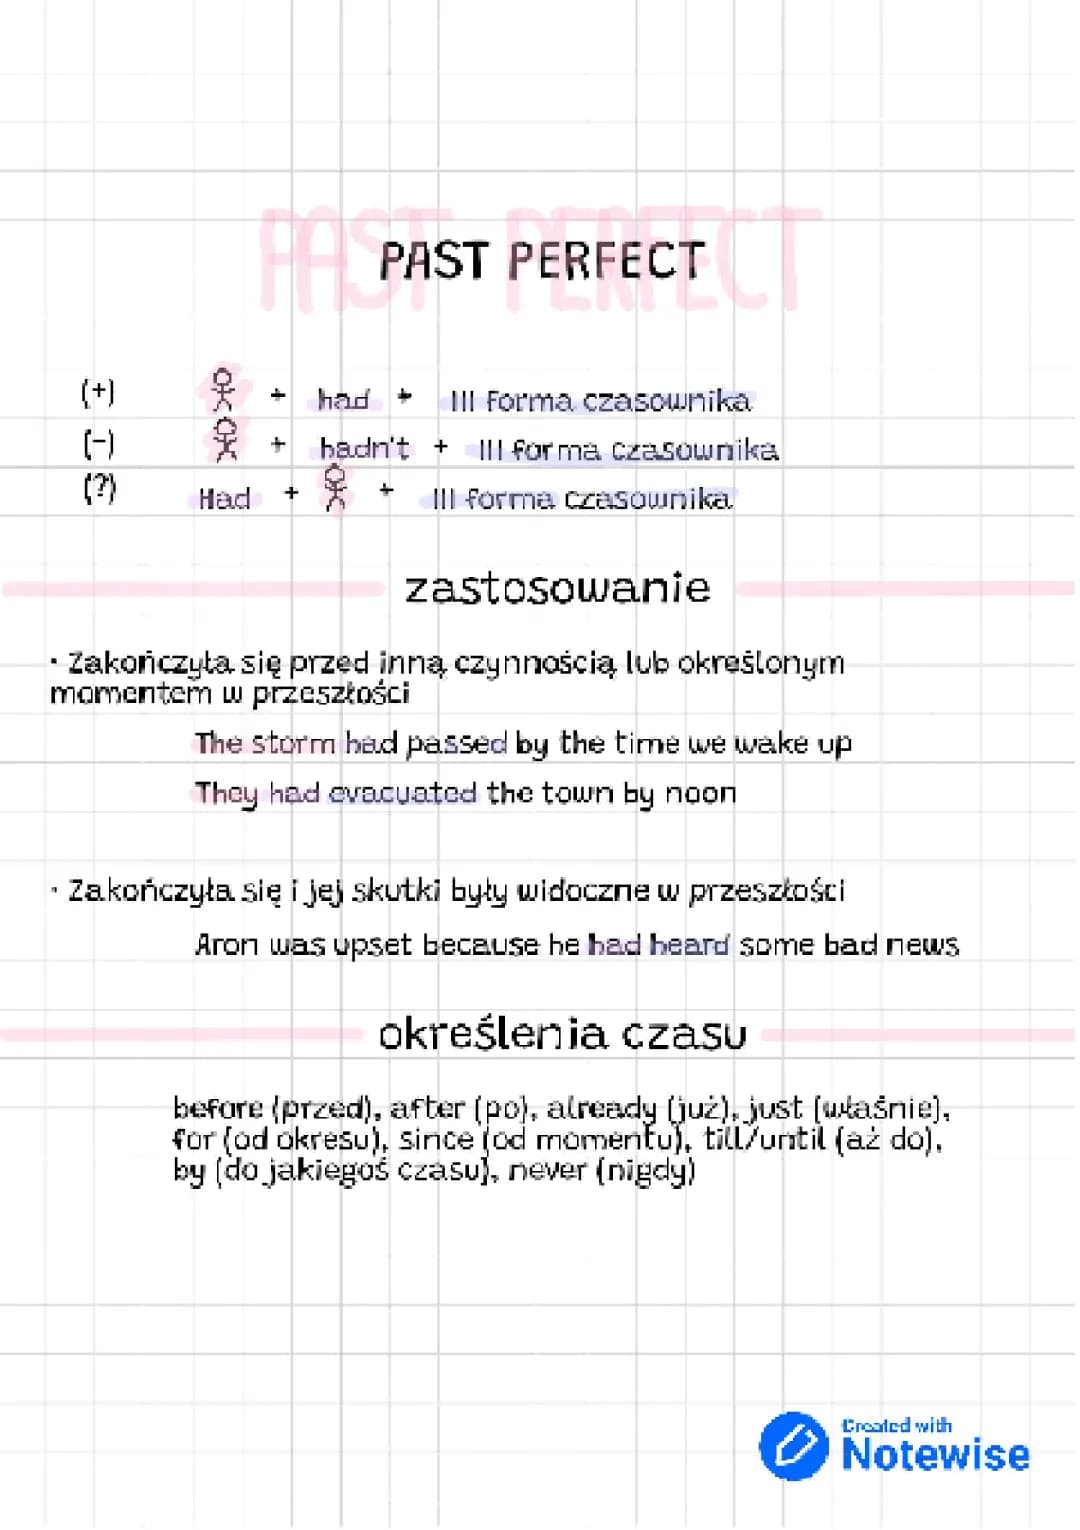 PAST PERFECT
(+) + had + III forma czasownika
(-) + hadn't + III forma czasownika
(?) Had + + III forma czasownika
zastosowanie
· Zakończyła się przed inną czynnością lub określonym
momentem w przeszłości
The storm had passed by the time we wake up
They had evacuated the town by noon
· Zakończyła się i jej skutki były widoczne w przeszłości
Aron was upset because he had heard some bad news
określenia czasu
before (przed), after (po), already (już), just (właśnie),
for (od okresu), since (od momentu), till/until (aż do),
by (do jakiegoś czasu), never (nigdy)
Created with
Notewise